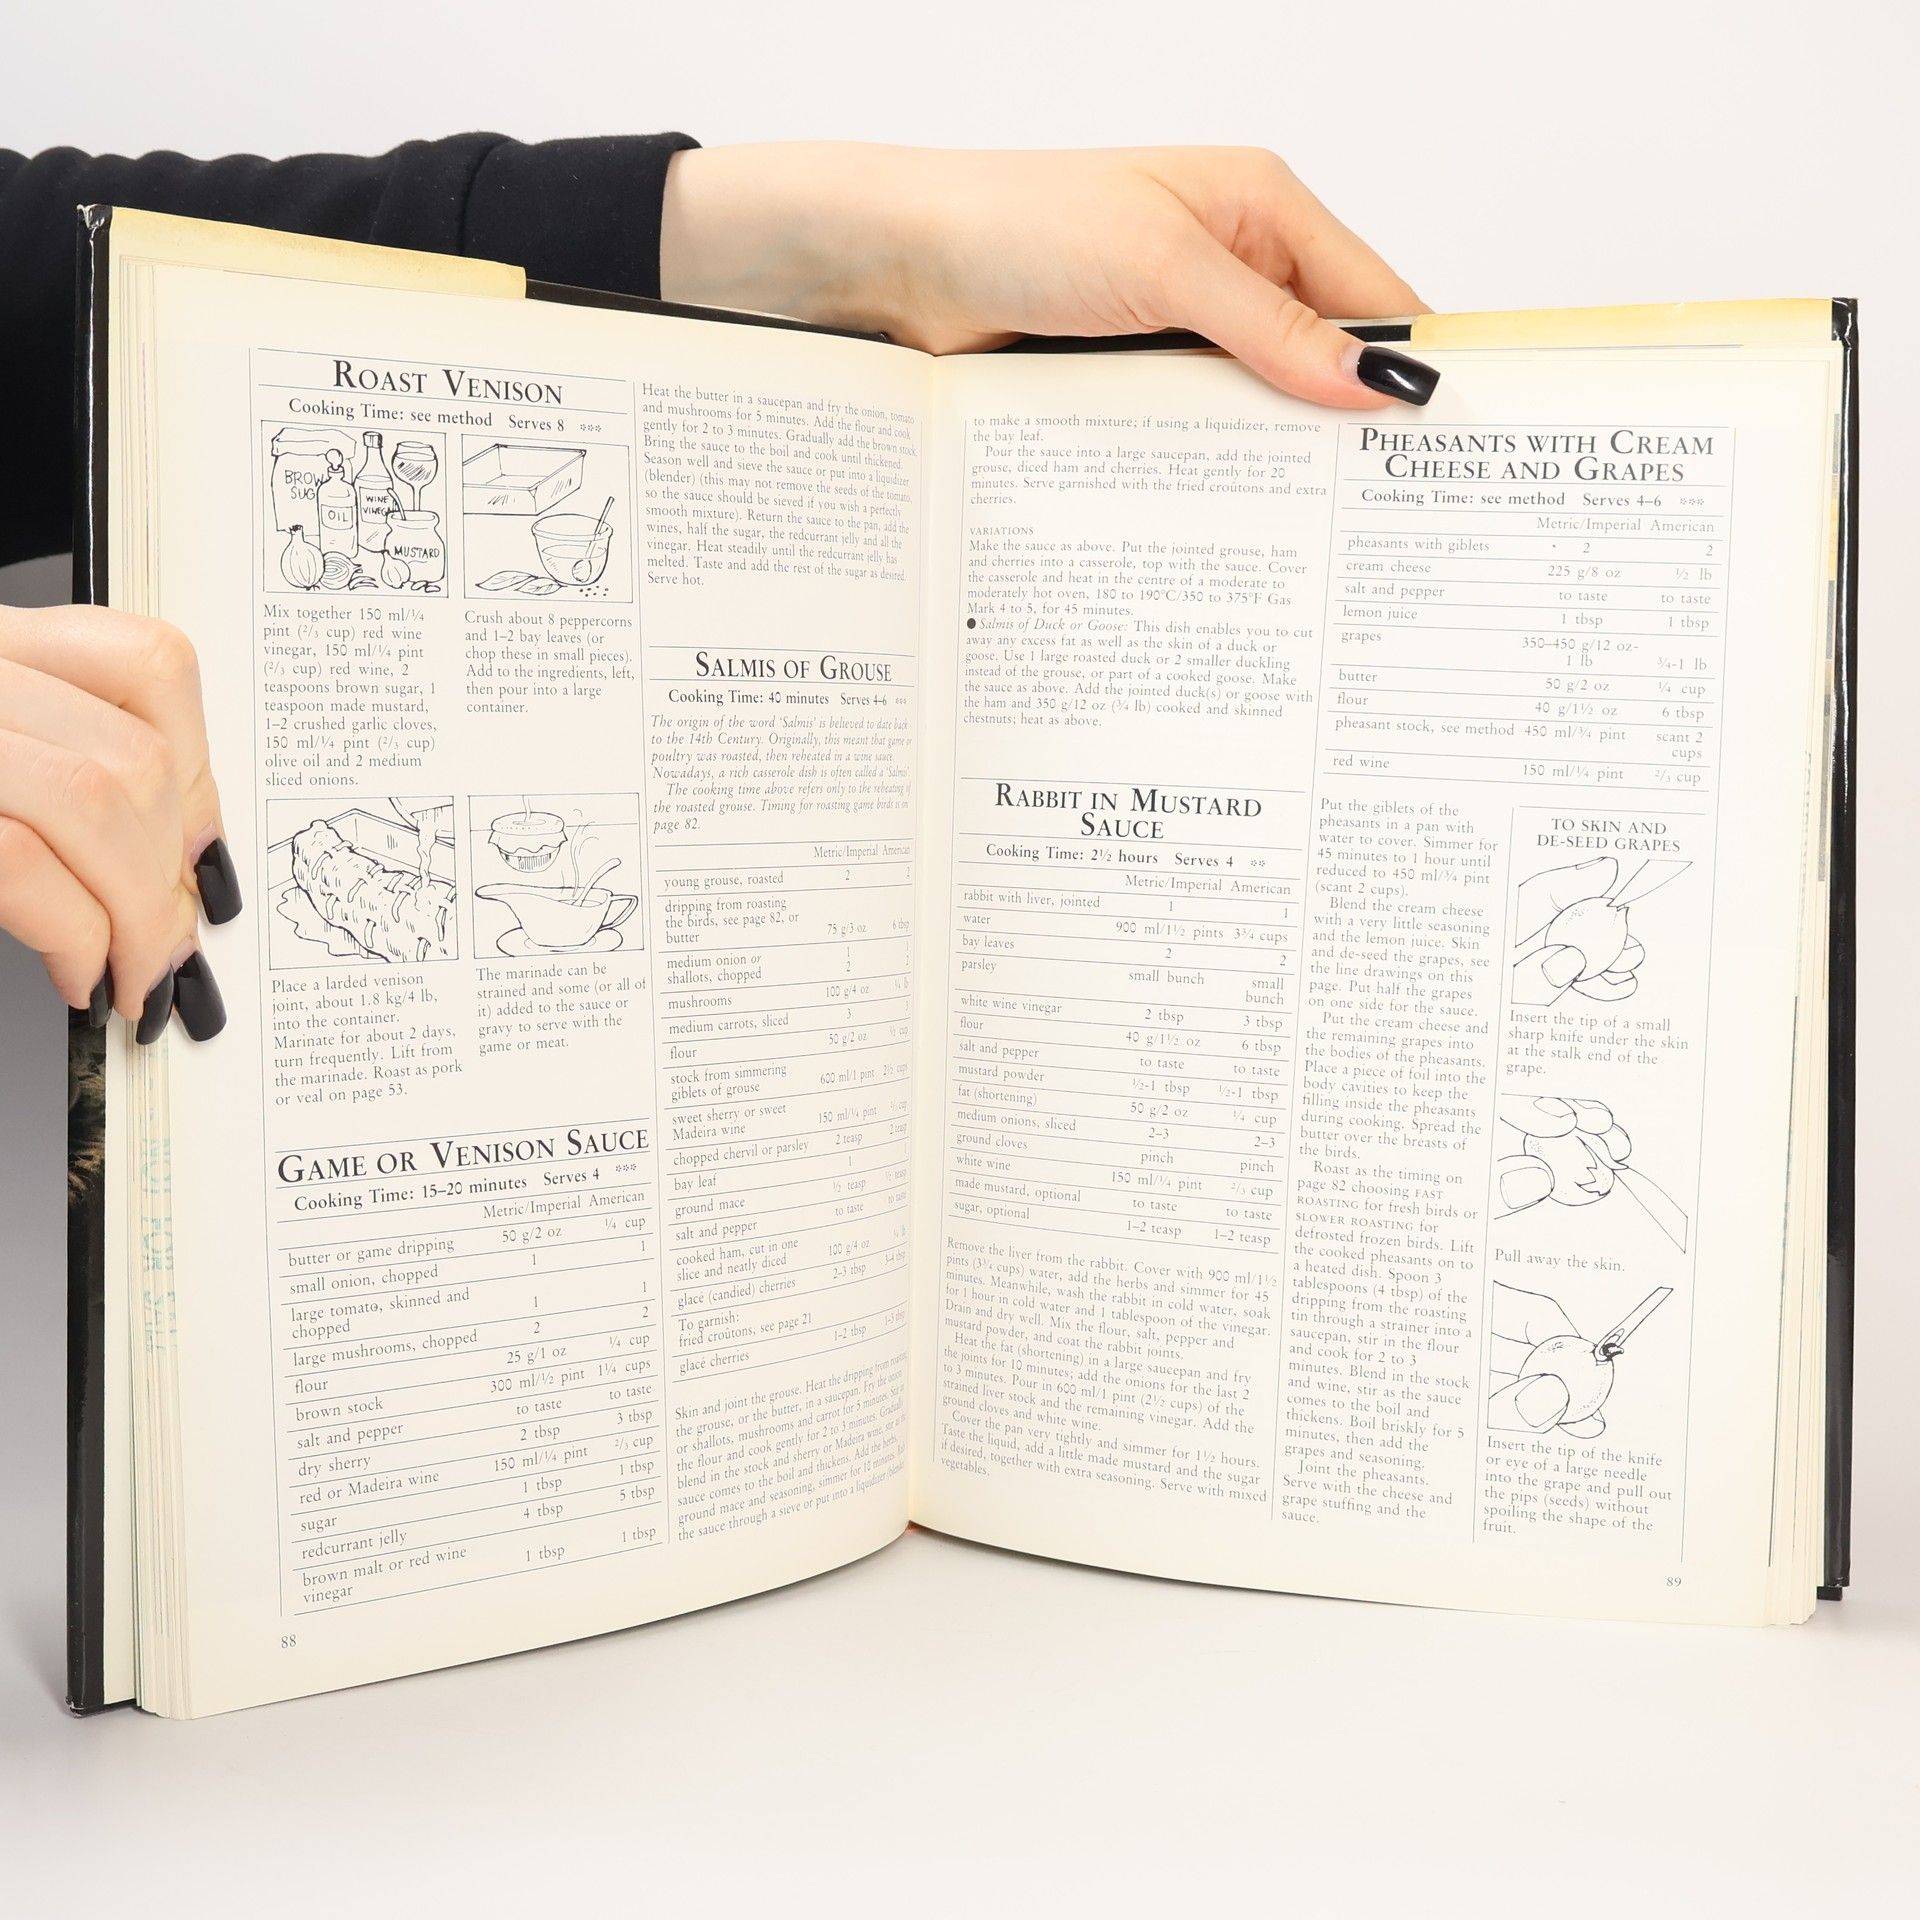 ROAST VENISON
Cooking Time: see method Serves 8 ***
BROW
SUG
OIL
WINE
VINEGA
MUSTARD
Mix together 150 ml/¼
pint (⅔ cup) red wine
vinegar, 150 ml/¼ pint
(⅔ cup) red wine, 2
teaspoons brown sugar, 1
teaspoon made mustard,
1–2 crushed garlic cloves,
150 ml/¼ pint (⅔ cup)
olive oil and 2 medium
sliced onions.
Crush about 8 peppercorns
and 1–2 bay leaves (or
chop these in small pieces).
Add to the ingredients, left,
then pour into a large
container.
Place a larded venison
joint, about 1.8 kg/4 lb,
into the container.
Marinate for about 2 days,
turn frequently. Lift from
the marinade. Roast as pork
or veal on page 53.
The marinade can be
strained and some (or all of
it) added to the sauce or
gravy to serve with the
game or meat.
GAME OR VENISON SAUCE
Cooking Time: 15–20 minutes Serves 4 ***
Metric/Imperial American
butter or game dripping 50 g/2 oz ¼ cup
small onion, chopped 1 1
large tomato, skinned and
chopped 1 1
large mushrooms, chopped 2 2
flour 25 g/1 oz ¼ cup
brown stock 300 ml/½ pint 1¼ cups
salt and pepper to taste to taste
dry sherry 2 tbsp 3 tbsp
red or Madeira wine 150 ml/¼ pint ⅔ cup
sugar 1 tbsp 1 tbsp
redcurrant jelly 4 tbsp 5 tbsp
brown malt or red wine
vinegar 1 tbsp 1 tbsp
88
Heat the butter in a saucepan and fry the onion, tomato
and mushrooms for 5 minutes. Add the flour and cook
gently for 2 to 3 minutes. Gradually add the brown stock.
Bring the sauce to the boil and cook until thickened.
Season well and sieve the sauce or put into a liquidizer
(blender) (this may not remove the seeds of the tomato,
so the sauce should be sieved if you wish a perfectly
smooth mixture). Return the sauce to the pan, add the
wines, half the sugar, the redcurrant jelly and all the
vinegar. Heat steadily until the redcurrant jelly has
melted. Taste and add the rest of the sugar as desired.
Serve hot.
SALMIS OF GROUSE
Cooking Time: 40 minutes Serves 4–6 ***
The origin of the word 'Salmis' is believed to date back
to the 14th Century. Originally, this meant that game or
poultry was roasted, then reheated in a wine sauce.
Nowadays, a rich casserole dish is often called a 'Salmis'.
The cooking time above refers only to the reheating of
the roasted grouse. Timing for roasting game birds is on
page 82.
Metric/Imperial American
young grouse, roasted 2 2
dripping from roasting
the birds, see page 82, or
butter 75 g/3 oz 6 tbsp
medium onion or 1 1
shallots, chopped 2 2
mushrooms 100 g/4 oz ¼ lb
medium carrots, sliced 3 3
flour 50 g/2 oz ½ cup
stock from simmering
giblets of grouse 600 ml/1 pint 2½ cups
sweet sherry or sweet
Madeira wine 150 ml/¼ pint ⅔ cup
chopped chervil or parsley 2 teasp 2 teasp
bay leaf 1 1
ground mace ½ teasp ½ teasp
salt and pepper to taste to taste
cooked ham, cut in one
slice and neatly diced 100 g/4 oz ¼ lb
glacé (candied) cherries 2–3 tbsp 3–4 tbsp
To garnish:
fried croûtons, see page 21
glacé cherries 1–2 tbsp 1–3 tbsp
Skin and joint the grouse. Heat the dripping from roasting
the grouse, or the butter, in a saucepan. Fry the onion
or shallots, mushrooms and carrot for 5 minutes. Stir in
the flour and cook gently for 2 to 3 minutes. Gradually
blend in the stock and sherry or Madeira wine, stir as the
sauce comes to the boil and thickens. Add the herbs,
ground mace and seasoning, simmer for 10 minutes. Rub
the sauce through a sieve or put into a liquidizer (blender)
to make a smooth mixture; if using a liquidizer, remove
the bay leaf.
Pour the sauce into a large saucepan, add the jointed
grouse, diced ham and cherries. Heat gently for 20
minutes. Serve garnished with the fried croûtons and extra
cherries.
VARIATIONS
Make the sauce as above. Put the jointed grouse, ham
and cherries into a casserole, top with the sauce. Cover
the casserole and heat in the centre of a moderate to
moderately hot oven, 180 to 190°C/350 to 375°F Gas
Mark 4 to 5, for 45 minutes.
● Salmis of Duck or Goose: This dish enables you to cut
away any excess fat as well as the skin of a duck or
goose. Use 1 large roasted duck or 2 smaller duckling
instead of the grouse, or part of a cooked goose. Make
the sauce as above. Add the jointed duck(s) or goose with
the ham and 350 g/12 oz (¾ lb) cooked and skinned
chestnuts; heat as above.
RABBIT IN MUSTARD
SAUCE
Cooking Time: 2½ hours Serves 4 **
Metric/Imperial American
rabbit with liver, jointed 1 1
water 900 ml/1½ pints 3¾ cups
bay leaves 2 2
parsley small bunch small
bunch
white wine vinegar 2 tbsp 3 tbsp
flour 40 g/1½ oz 6 tbsp
salt and pepper to taste to taste
mustard powder ½-1 tbsp ½-1 tbsp
fat (shortening) 50 g/2 oz ¼ cup
medium onions, sliced 2–3 2–3
ground cloves pinch pinch
white wine 150 ml/¼ pint ⅔ cup
made mustard, optional to taste to taste
sugar, optional 1–2 teasp 1–2 teasp
Remove the liver from the rabbit. Cover with 900 ml/1½
pints (3¾ cups) water, add the herbs and simmer for 45
minutes. Meanwhile, wash the rabbit in cold water, soak
for 1 hour in cold water and 1 tablespoon of the vinegar.
Drain and dry well. Mix the flour, salt, pepper and
mustard powder, and coat the rabbit joints.
Heat the fat (shortening) in a large saucepan and fry
the joints for 10 minutes; add the onions for the last 2
to 3 minutes. Pour in 600 ml/1 pint (2½ cups) of the
strained liver stock and the remaining vinegar. Add the
ground cloves and white wine.
Cover the pan very tightly and simmer for 1½ hours.
Taste the liquid, add a little made mustard and the sugar
if desired, together with extra seasoning. Serve with mixed
vegetables.
PHEASANTS WITH CREAM
CHEESE AND GRAPES
Cooking Time: see method Serves 4–6 ***
Metric/Imperial American
pheasants with giblets 2 2
cream cheese 225 g/8 oz ½ lb
salt and pepper to taste to taste
lemon juice 1 tbsp 1 tbsp
grapes 350–450 g/12 oz-
1 lb ¾-1 lb
butter 50 g/2 oz ¼ cup
flour 40 g/1½ oz 6 tbsp
pheasant stock, see method 450 ml/¾ pint scant 2
cups
red wine 150 ml/¼ pint ⅔ cup
Put the giblets of the
pheasants in a pan with
water to cover. Simmer for
45 minutes to 1 hour until
reduced to 450 ml/¾ pint
(scant 2 cups).
Blend the cream cheese
with a very little seasoning
and the lemon juice. Skin
and de-seed the grapes, see
the line drawings on this
page. Put half the grapes
on one side for the sauce.
Put the cream cheese and
the remaining grapes into
the bodies of the pheasants.
Place a piece of foil into the
body cavities to keep the
filling inside the pheasants
during cooking. Spread the
butter over the breasts of
the birds.
Roast as the timing on
page 82 choosing FAST
ROASTING for fresh birds or
SLOWER ROASTING for
defrosted frozen birds. Lift
the cooked pheasants on to
a heated dish. Spoon 3
tablespoons (4 tbsp) of the
dripping from the roasting
tin through a strainer into a
saucepan, stir in the flour
and cook for 2 to 3
minutes. Blend in the stock
and wine, stir as the sauce
comes to the boil and
thickens. Boil briskly for 5
minutes, then add the
grapes and seasoning.
Joint the pheasants.
Serve with the cheese and
grape stuffing and the
sauce.
TO SKIN AND
DE-SEED GRAPES
Insert the tip of a small
sharp knife under the skin
at the stalk end of the
grape.
Pull away the skin.
Insert the tip of the knife
or eye of a large needle
into the grape and pull out
the pips (seeds) without
spoiling the shape of the
fruit.
89